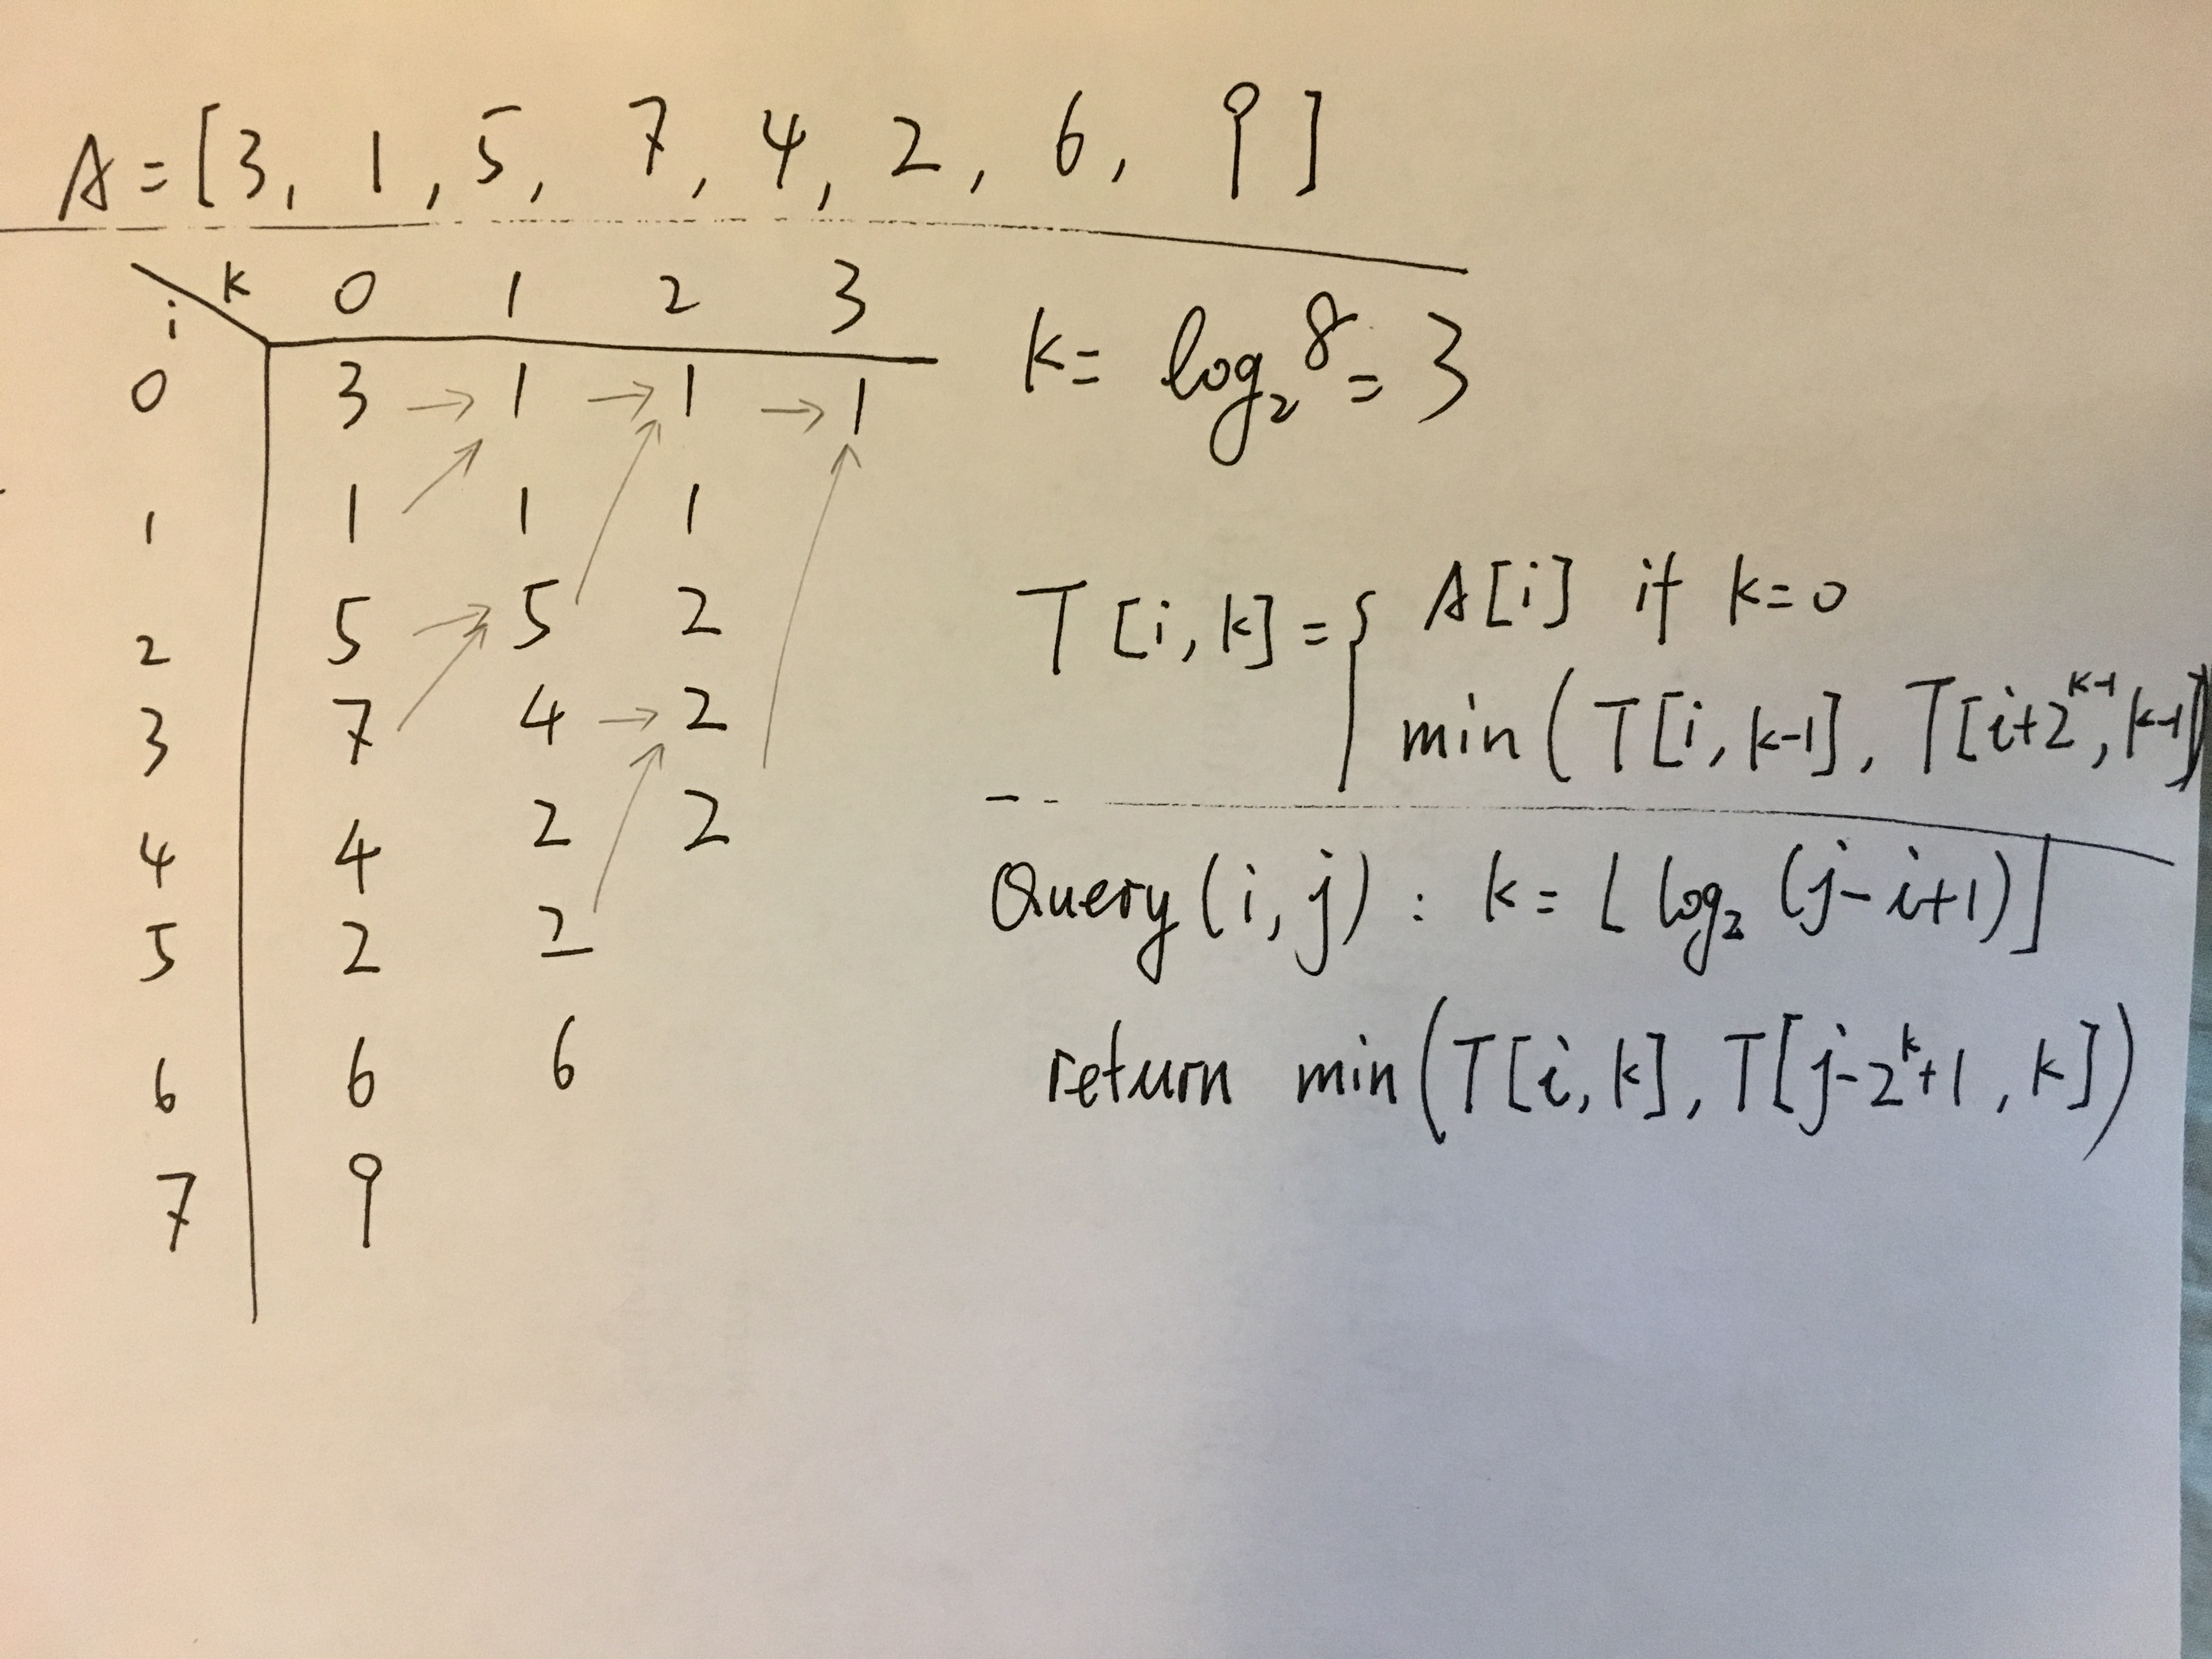 A = [3, 1, 5, 7, 4, 2, 6, 9]
i k 0 1 2 3
0 3 → 1 → 1 → 1
1 1 1 1
2 5 → 5 2
3 7 4 → 2
4 4 2 2
5 2 2
6 6 6
7 9
k = log₂ 8 = 3
T[i, k] = { A[i] if k=0
min(T[i, k-1], T[i+2ᵏ⁻¹, k-1])
Query(i, j) : k = ⌊log₂(j-i+1)⌋
return min(T[i, k], T[j-2ᵏ+1, k])